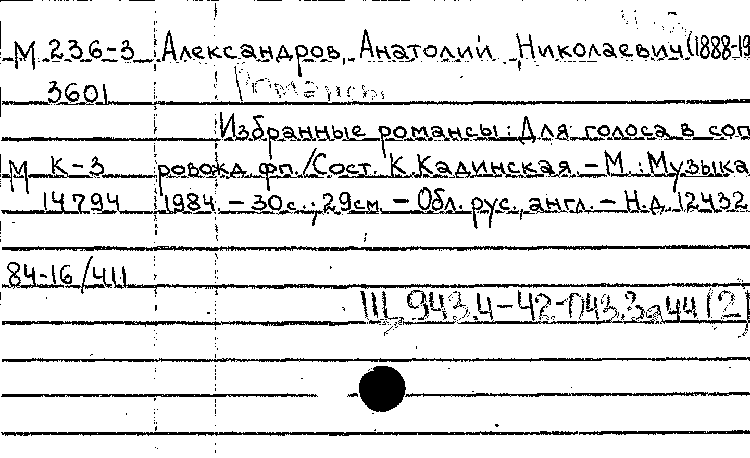 М 236-3 Александров, Анатолий Николаевич (1888-19
3601 Романсы
Избранные романсы: Для голоса в соп
М К-3 ровожд. фп./Сост. К. Калинская. – М.: Музыка
14794 1984 – 30с.; 29см. – Обл. рус., англ. – Н.д. 12432
84-16/411
Щ 943.4-42-П43.3я44 (2)